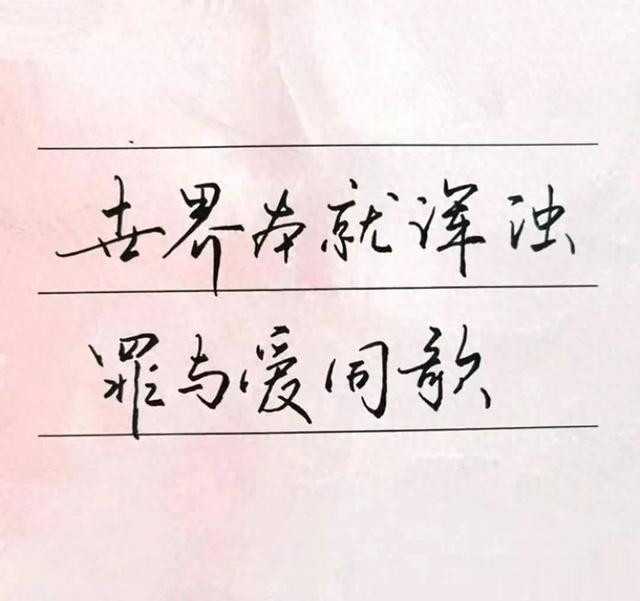 世界本就浑浊
罪与爱同歌